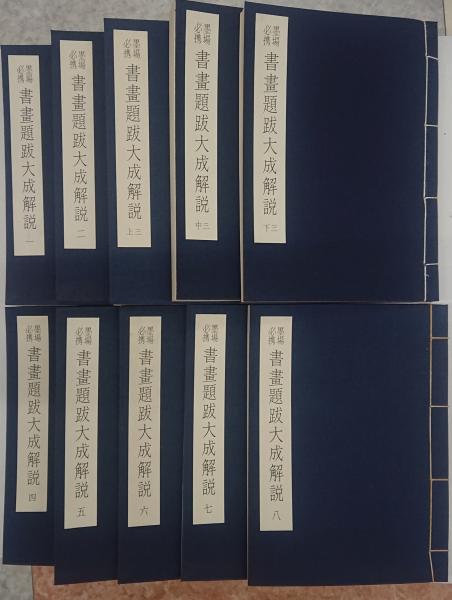 墨場必携 書畫題跋大成解説 一
墨場必携 書畫題跋大成解説 二
墨場必携 書畫題跋大成解説 三上
墨場必携 書畫題跋大成解説 三中
墨場必携 書畫題跋大成解説 三下
墨場必携 書畫題跋大成解説 四
墨場必携 書畫題跋大成解説 五
墨場必携 書畫題跋大成解説 六
墨場必携 書畫題跋大成解説 七
墨場必携 書畫題跋大成解説 八